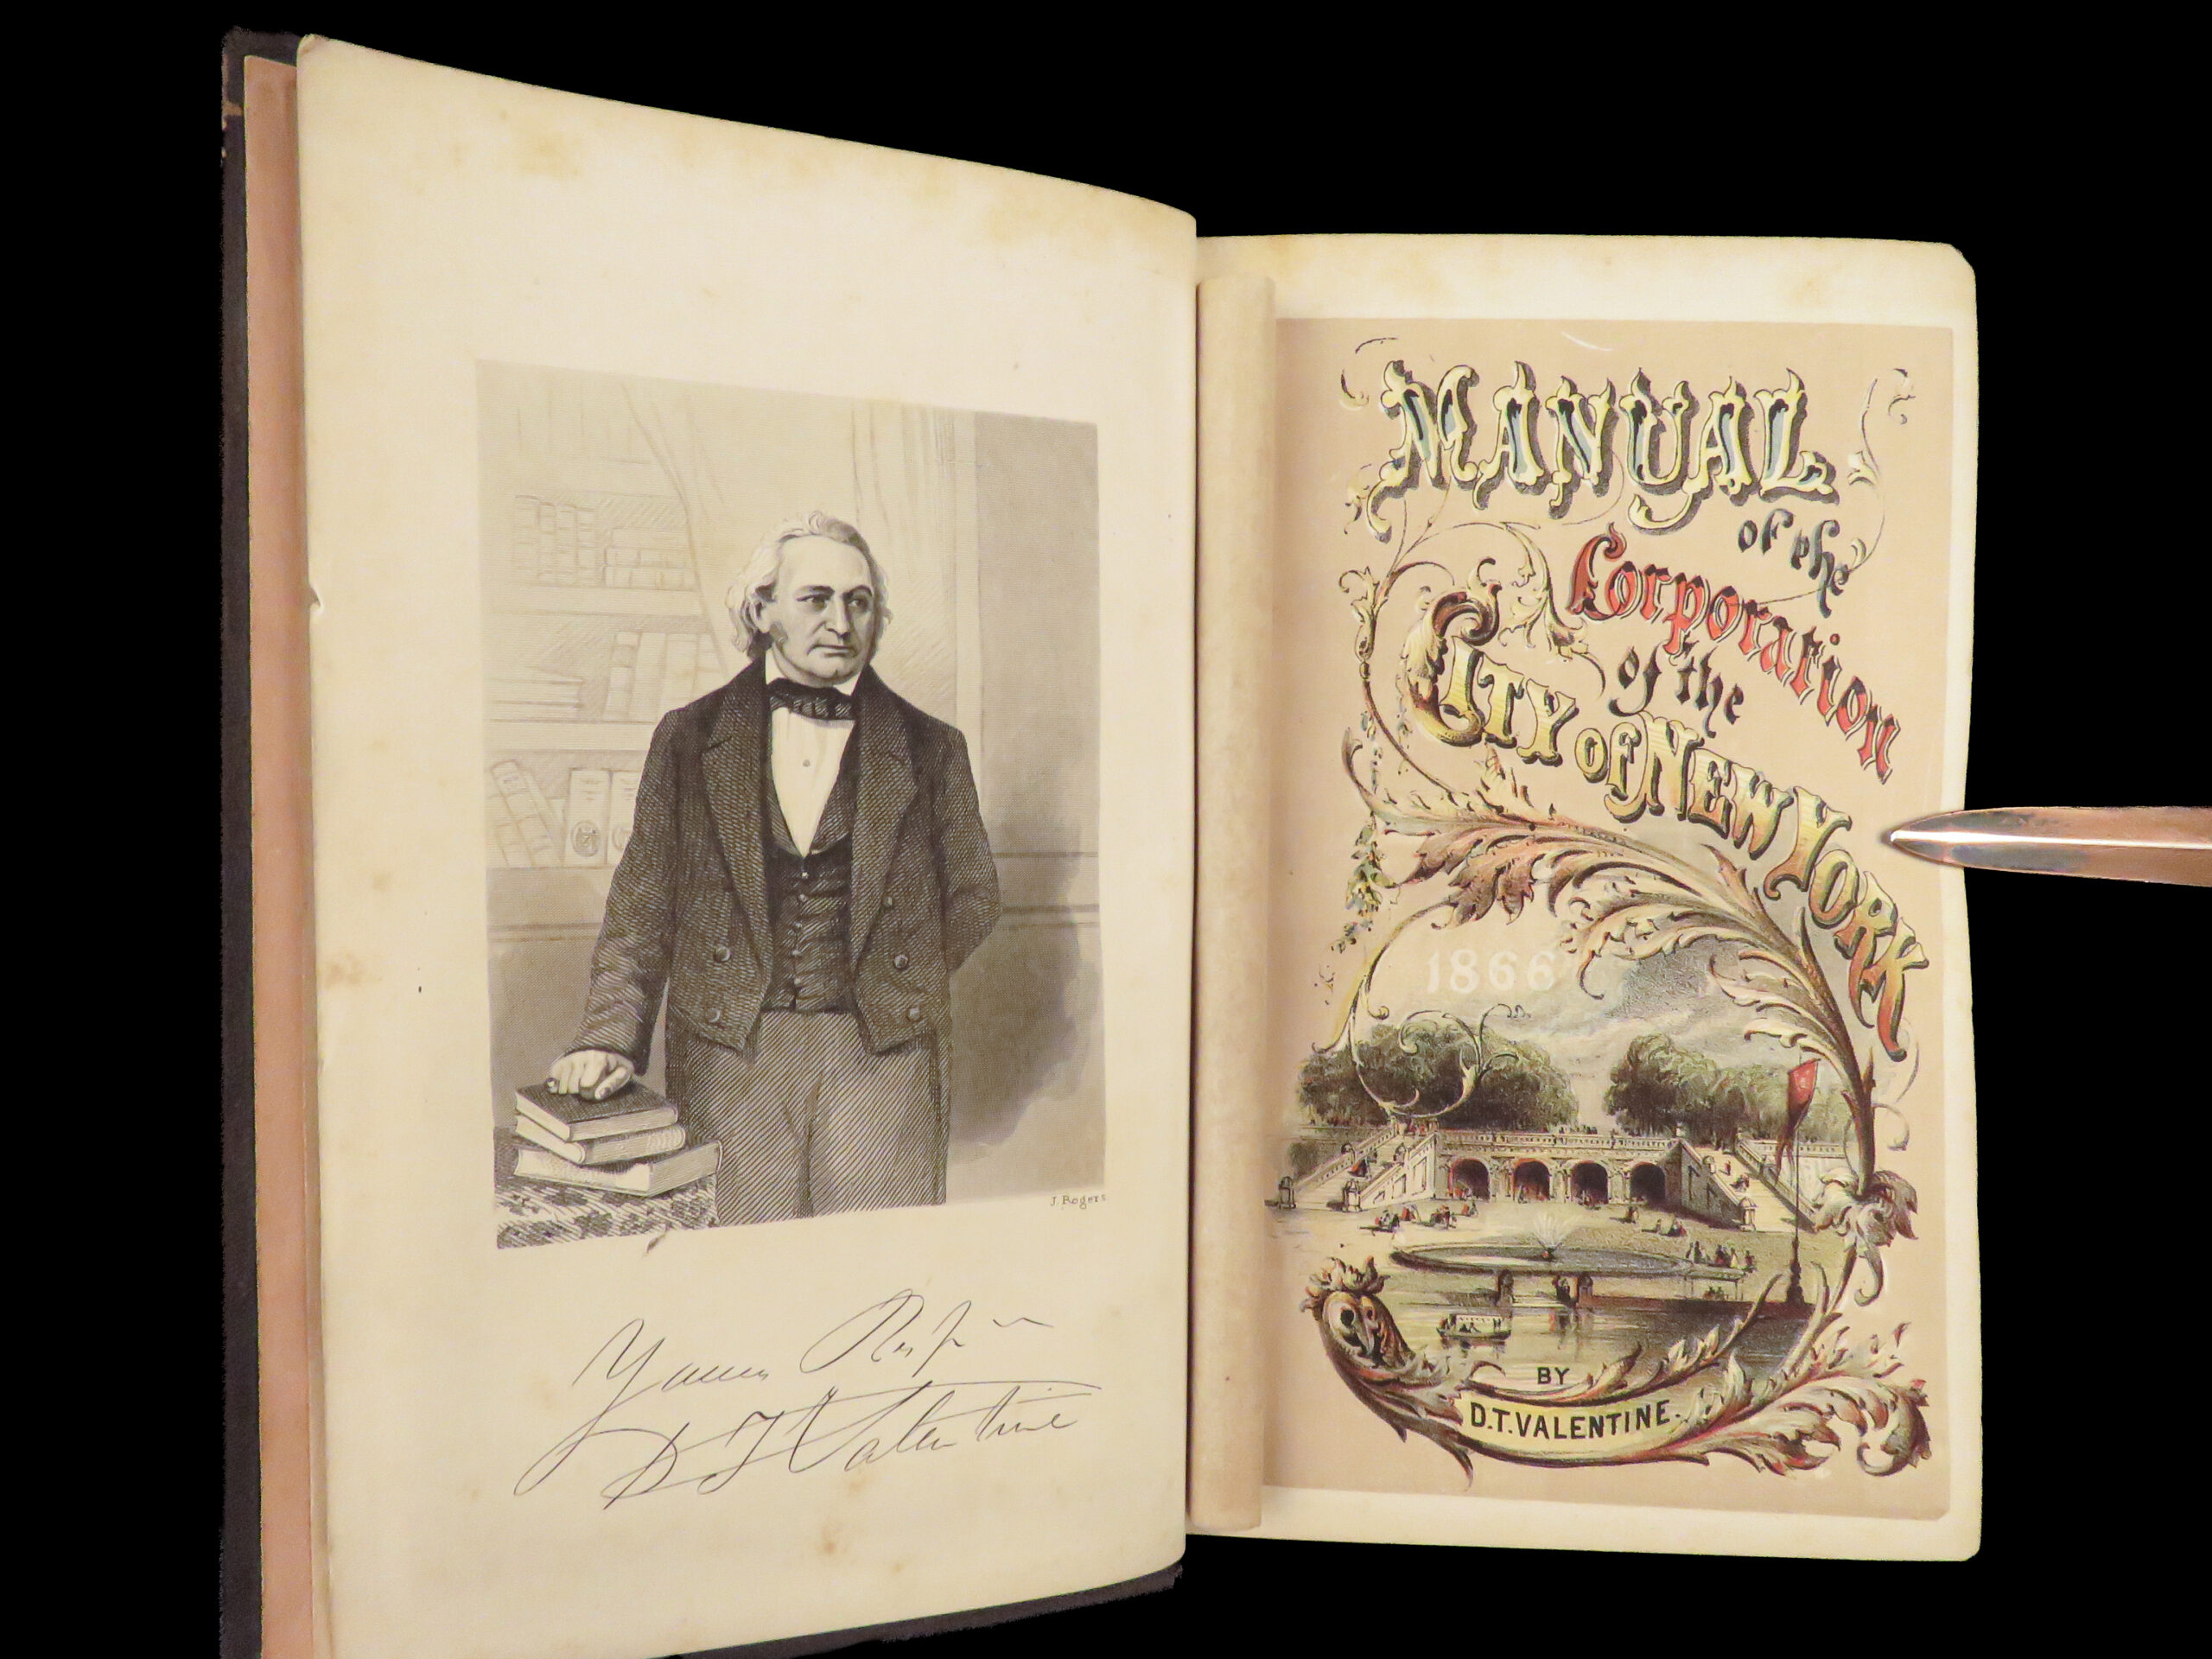 J. Rogers
Yours Resp
D T Valentine
MANUAL
of the
Corporation
of the
CITY OF NEW YORK
1866
BY
D.T. VALENTINE.